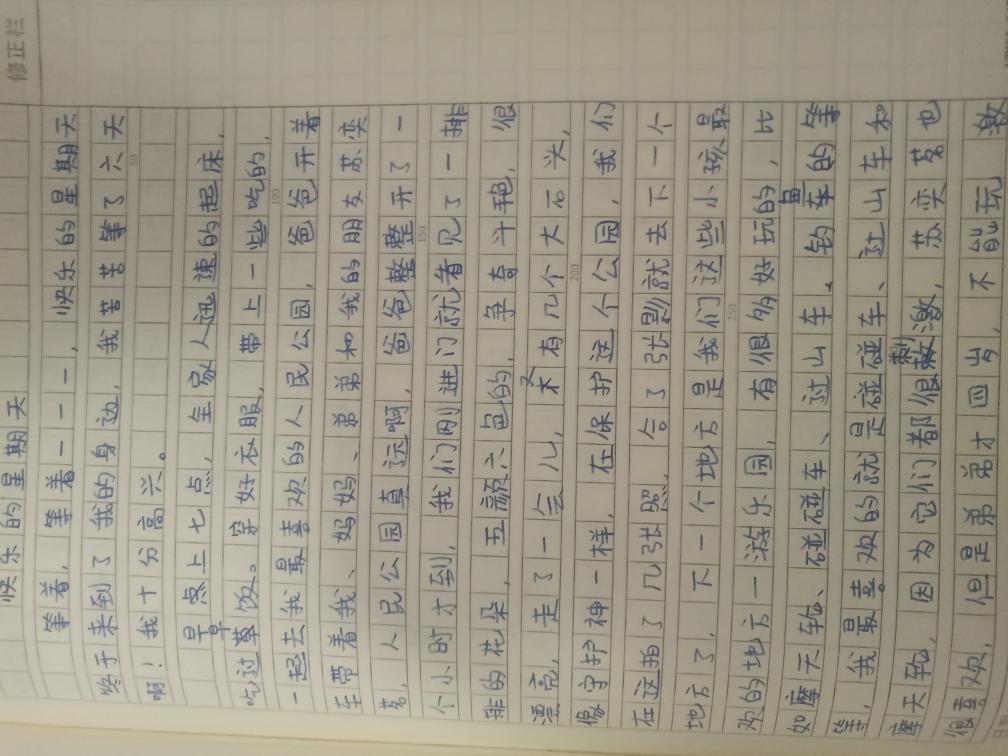 修正栏
快乐的星期天
等着，等着———，快乐的星期天
终于来到了我的身边，我苦苦等了六天
50
啊！我十分高兴。
早晨上七点，全家人迅速的起床，
吃过早饭。穿好衣服，带上一些吃的，
100
一起去我最喜欢的人民公园，爸爸开着
车带着我、妈妈、弟弟和我的朋友苏奕
茗，人民公园真远啊，爸爸整整开了一
150
个小时才到，我们刚进门就看见了一排
排的花朵，五颜六色的，争奇斗艳，很
漂亮，走了一会儿，又有几个大石头，
200
像守护神一样，在保护这个公园，我们
在这拍了几张照，合了张影就去下一个
地方了，下一个地方是我们这些小孩最
250
欢的地方一游乐园，有很多好玩的，比
如摩天轮、碰碰车、过山车、钓鱼的等
等，我最喜欢的就是碰碰车、过山车和
摩天轮，因为它们都很刺激，苏奕茗也
很喜欢，但是弟弟才四岁，不能玩激